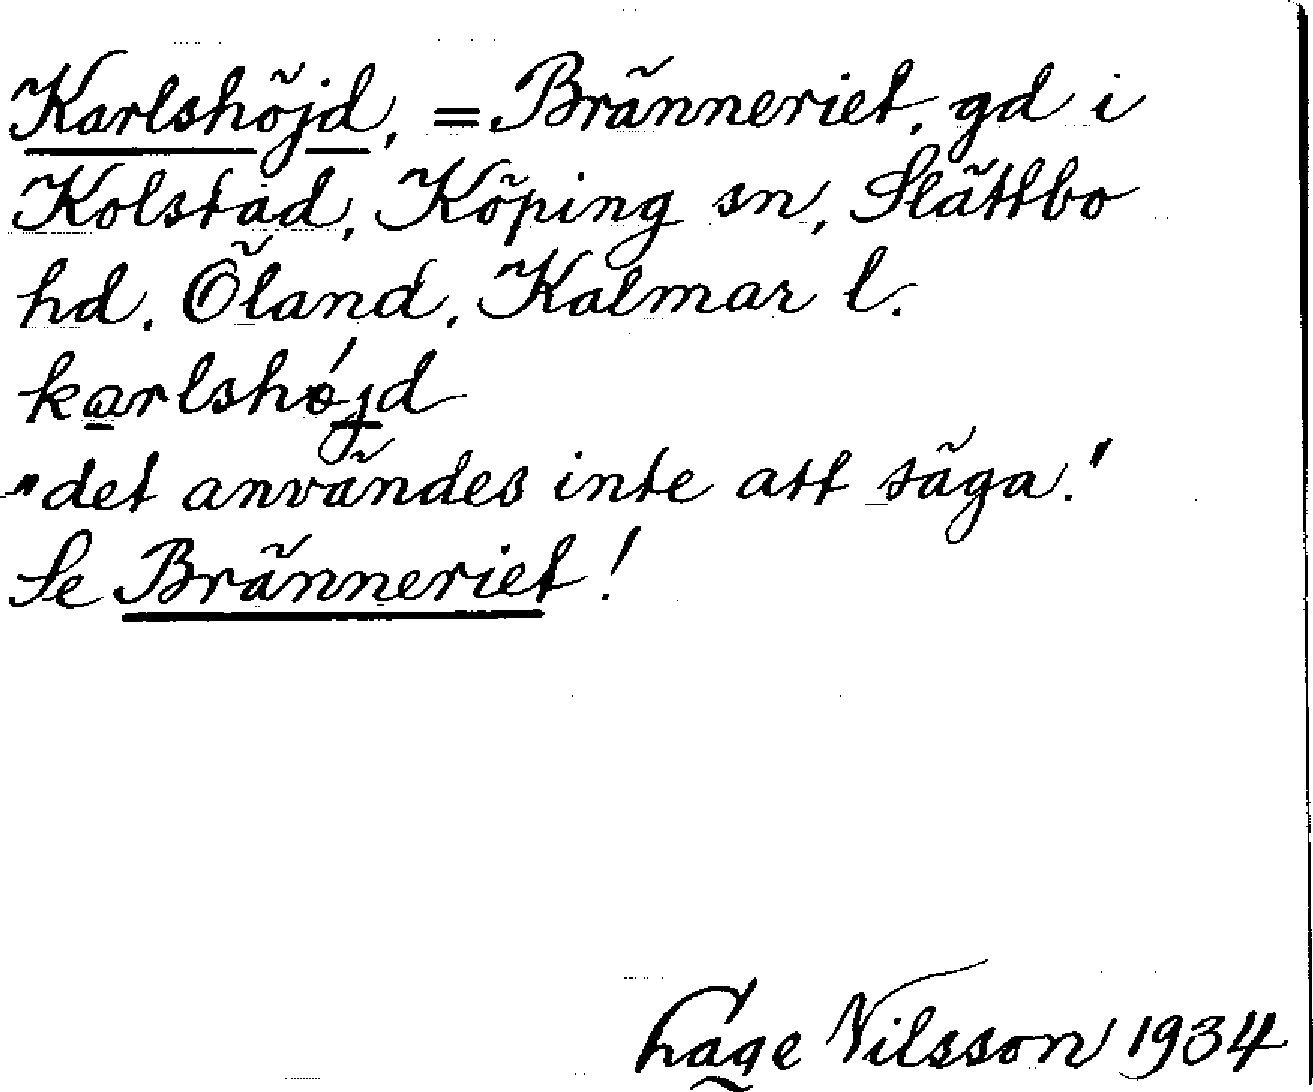 Karlshöjd, = Bränneriet, gd i
Kolstad, Köping sn, Slättbo
hd, Öland, Kalmar l.
karlshöjd
"det användes inte att säga."
Se Bränneriet!
Lage Nilsson 1934